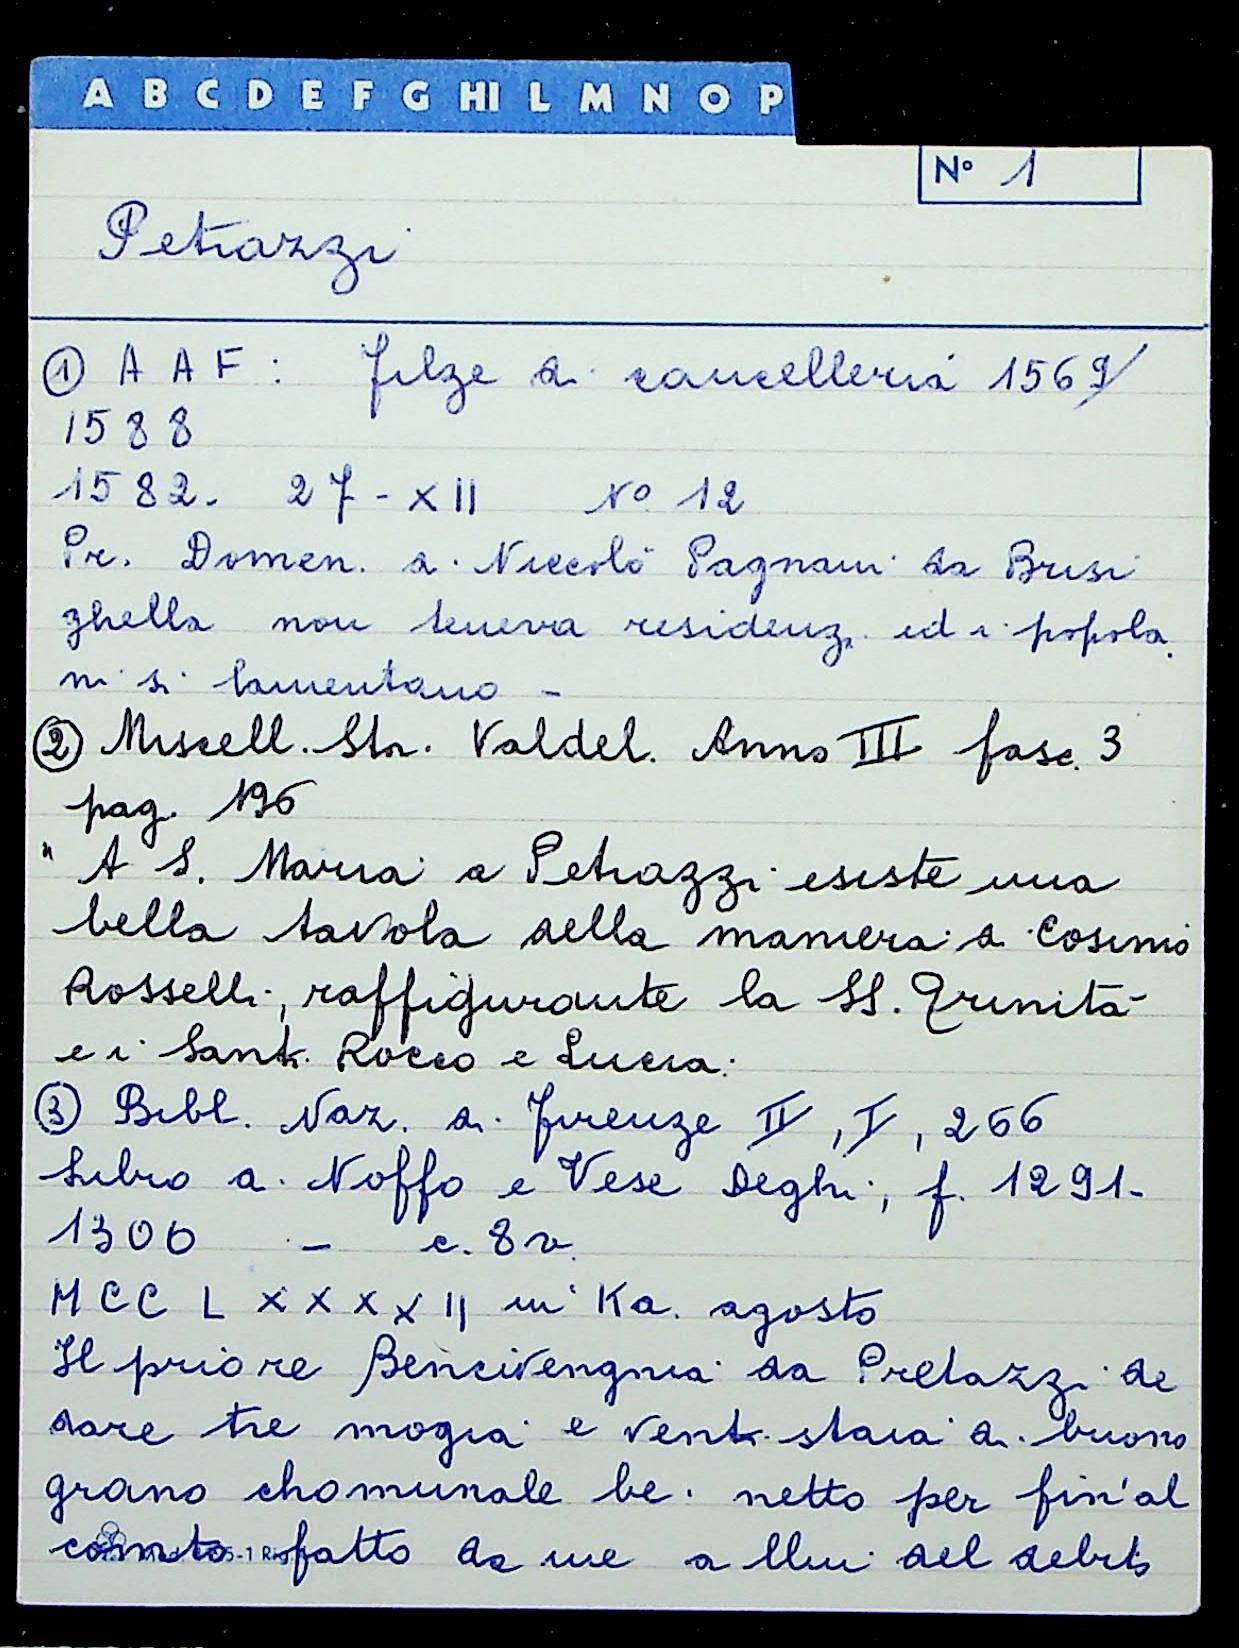 A B C D E F G HI L M N O P
N° 1
Petrazzi
① A A F : Filze di cancelleria 1569/
1588
1582. 27 - XII N° 12
Pr. Domen. di Niccolò Pagnani da Brisi
ghella non teneva residenz. ed i popola
ni si lamentano -
② Miscell. Str. Valdel. Anno III fasc. 3
pag. 196
" A S. Maria a Petrazzi esiste una
bella tavola della maniera di Cosimo
Rosselli, raffigurante la SS. Trinità
e i Santi Rocco e Lucia.
③ Bibl. Naz. di Firenze II, I, 266
Libro di Noffo e Vese Deghi, f. 1291-
1300 - c. 8v.
MCC L X X X X II in Ka. agosto
Il priore Bencivengnia da Pretazzi de
dare tre mogia e venti staia di buono
grano chomunale be. netto per fin'al
comto fatto da me a llui del debito